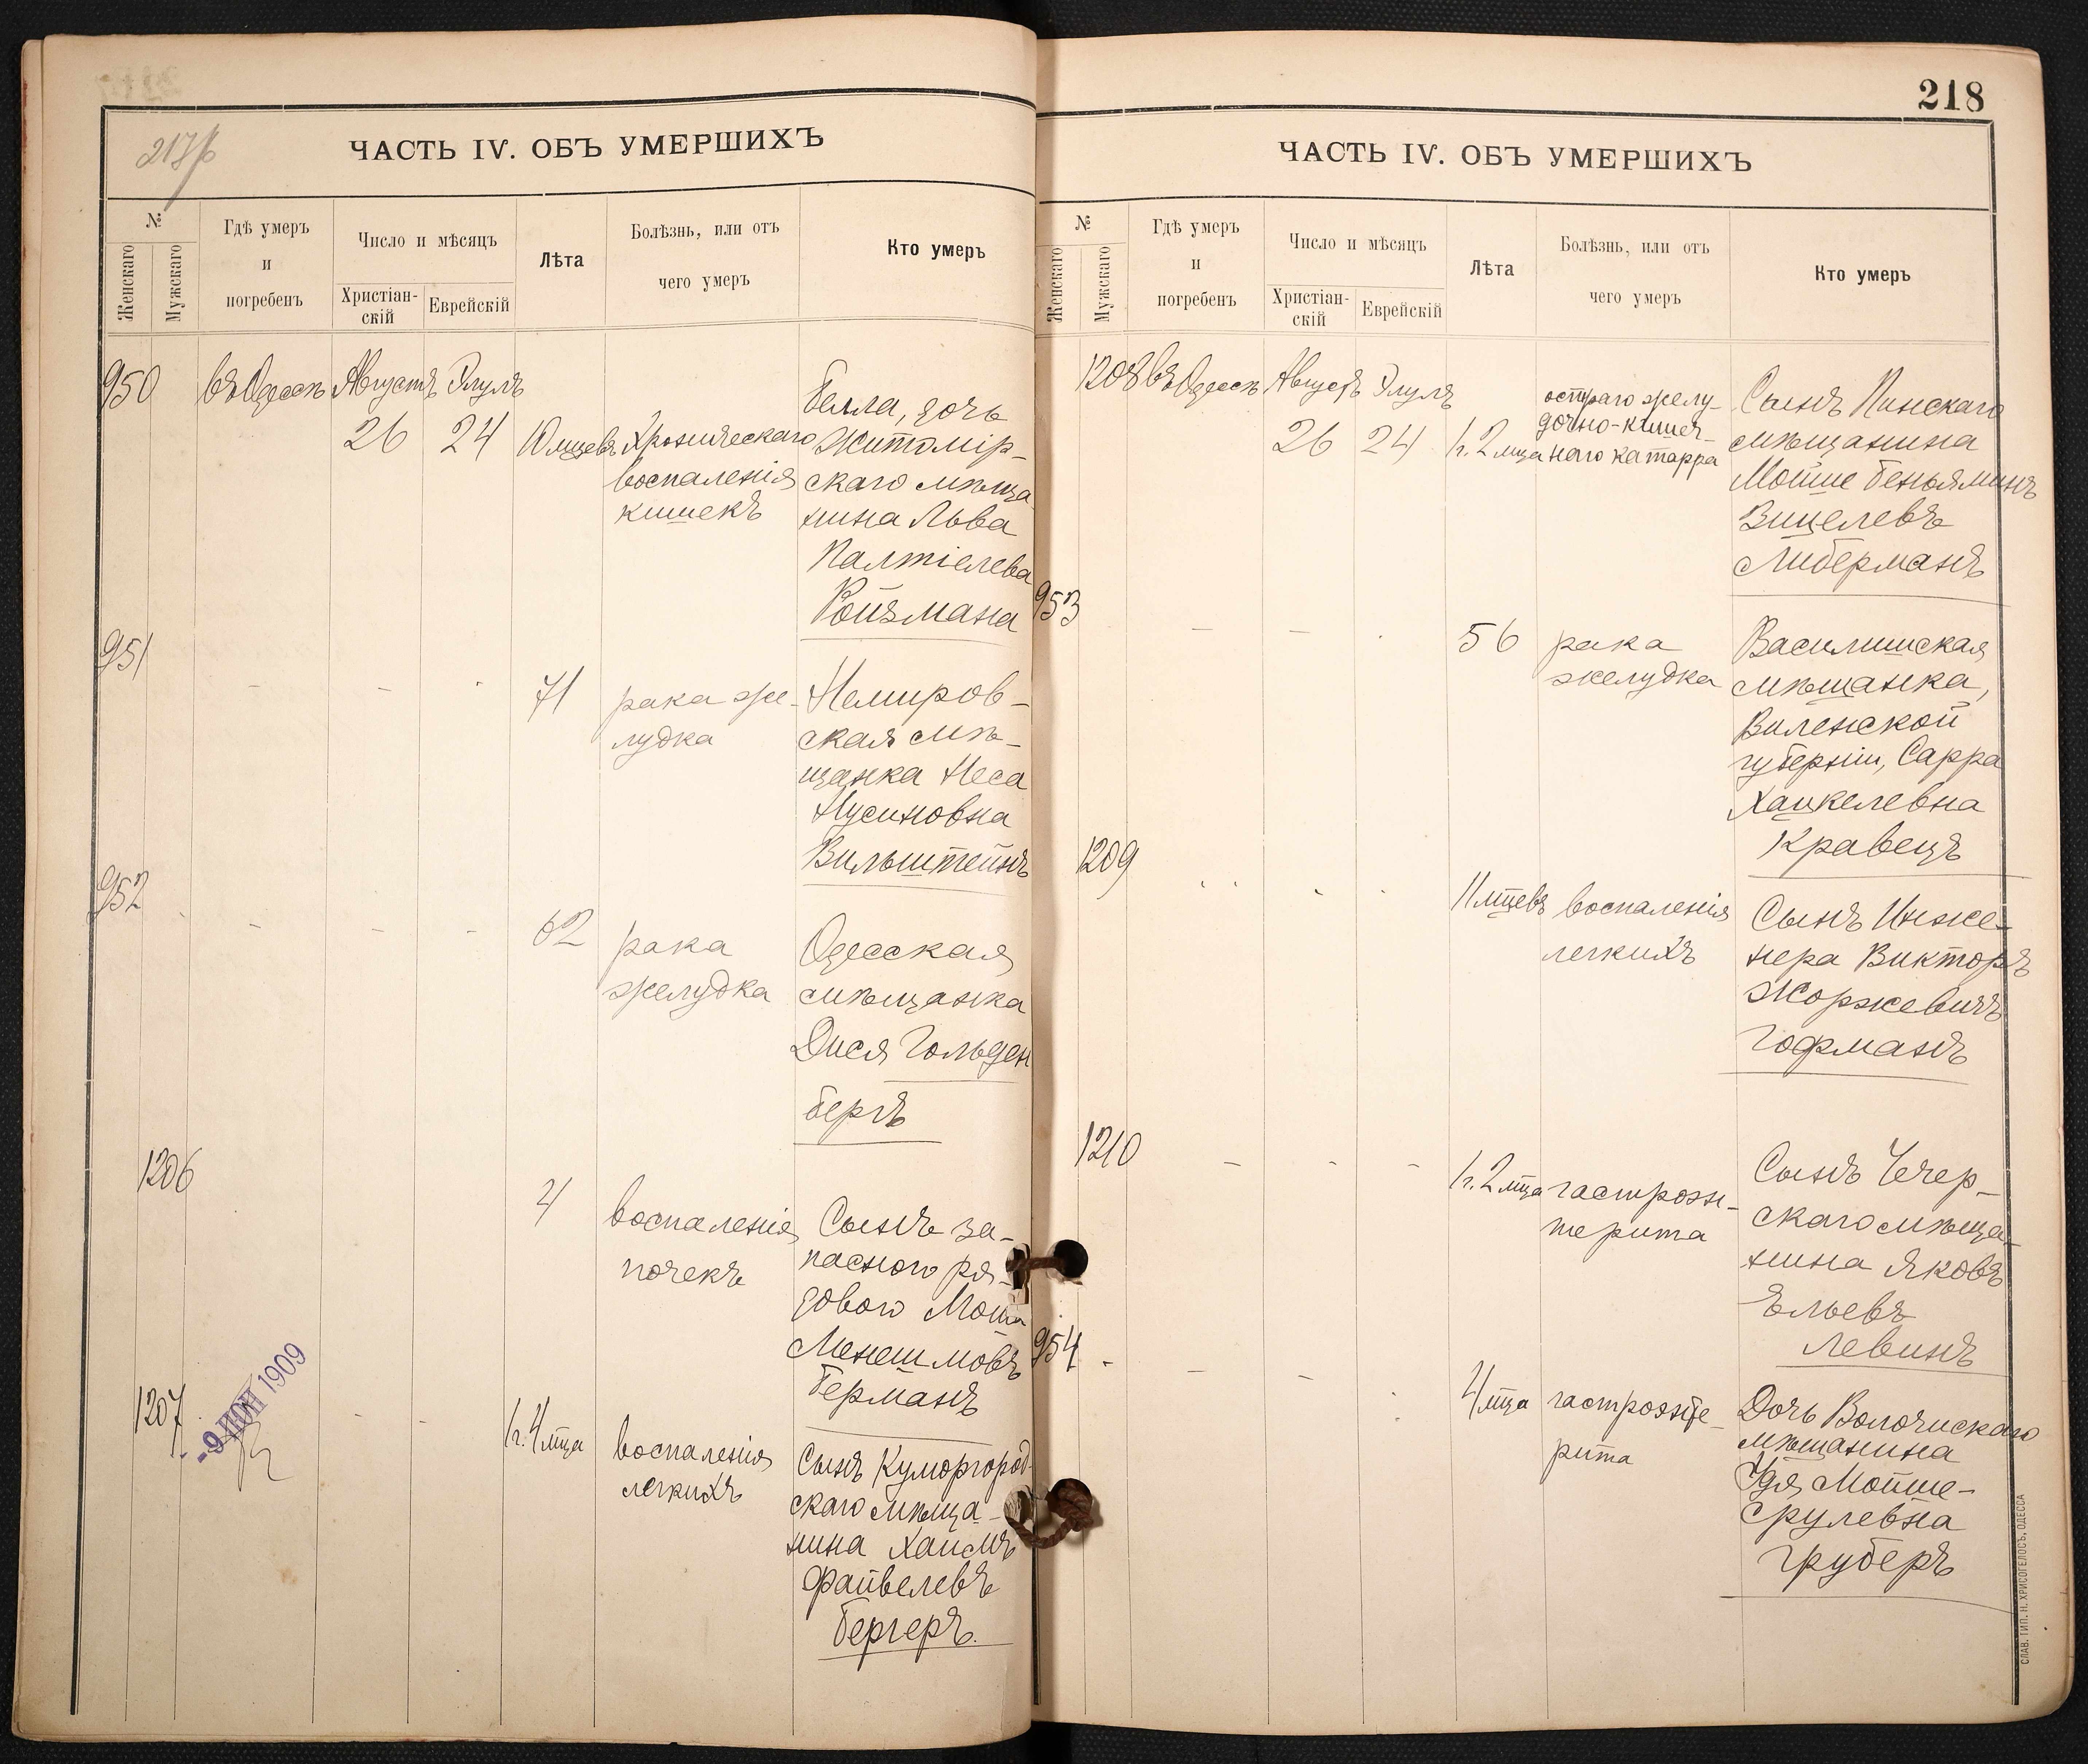 217/б
ЧАСТЬ IV. ОБЪ УМЕРШИХЪ
№
Женскаго
Мужскаго
Гдѣ умеръ
и
погребенъ
Число и мѣсяцъ
Христіан-
скій
Еврейскій
Лѣта
Болѣзнь, или отъ
чего умеръ
Кто умеръ
950 въ Одессѣ Августъ Элулъ
26 24 10 мцевъ
Хроническаго
воспаленія
кишекъ
Белла, дочь
Житомір-
скаго мѣща
нина Льва
Палтіелева
Ройзмана
951
- - - 71
рака же-
лудка
Немиров-
ская мѣ-
щанка Неса
Нусиновна
Вильштейнъ
952
- - - 62
рака
желудка
Одесская
мѣщанка
Дися Гольден
бергъ
1206
4
воспаленія
почекъ
Сынъ за-
паснаго ря-
дового
Менешмовъ
Германъ
1207
-9 ІЮН 1909
- - 1 г. 4 мца
воспаленія
легкихъ
Сынъ Куморгород-
скаго мѣща-
нина Хаимъ
Файвелевъ
Бергеръ.
218
ЧАСТЬ IV. ОБЪ УМЕРШИХЪ
№
Женскаго
Мужскаго
Гдѣ умеръ
и
погребенъ
Число и мѣсяцъ
Христіан-
скій
Еврейскій
Лѣта
Болѣзнь, или отъ
чего умеръ
Кто умеръ
1208 въ Одессѣ Августъ Элулъ
26 24 1 г. 2 мца
остраго желу-
дочно-кишеч-
наго катарра
Сынъ Пинскаго
мѣщанина
Мойше Беньяминъ
Вицелевъ
Либерманъ
953
- - - 56
рака
желудка
Василишская
мѣщанка,
Виленской
губерніи, Сарра
Хацкелевна
Кравецъ
1209
11 мцевъ
воспаленія
легкихъ
Сынъ Инже-
нера Викторъ
Жоржевичъ
Гофманъ
1210
- - - 1 г. 2 мца
гастроэн-
терита
Сынъ Чечер-
скаго мѣща-
нина Яковъ
Эльевъ
Левинъ
954
- - - 4 мца
гастроэнте-
рита
Дочь Волочискаго
мѣщанина
Удя Мойше-
Срулевна
Груберъ
СЛАВ. ТИП. Н. ХРИСОГЕЛОСЪ, ОДЕССА